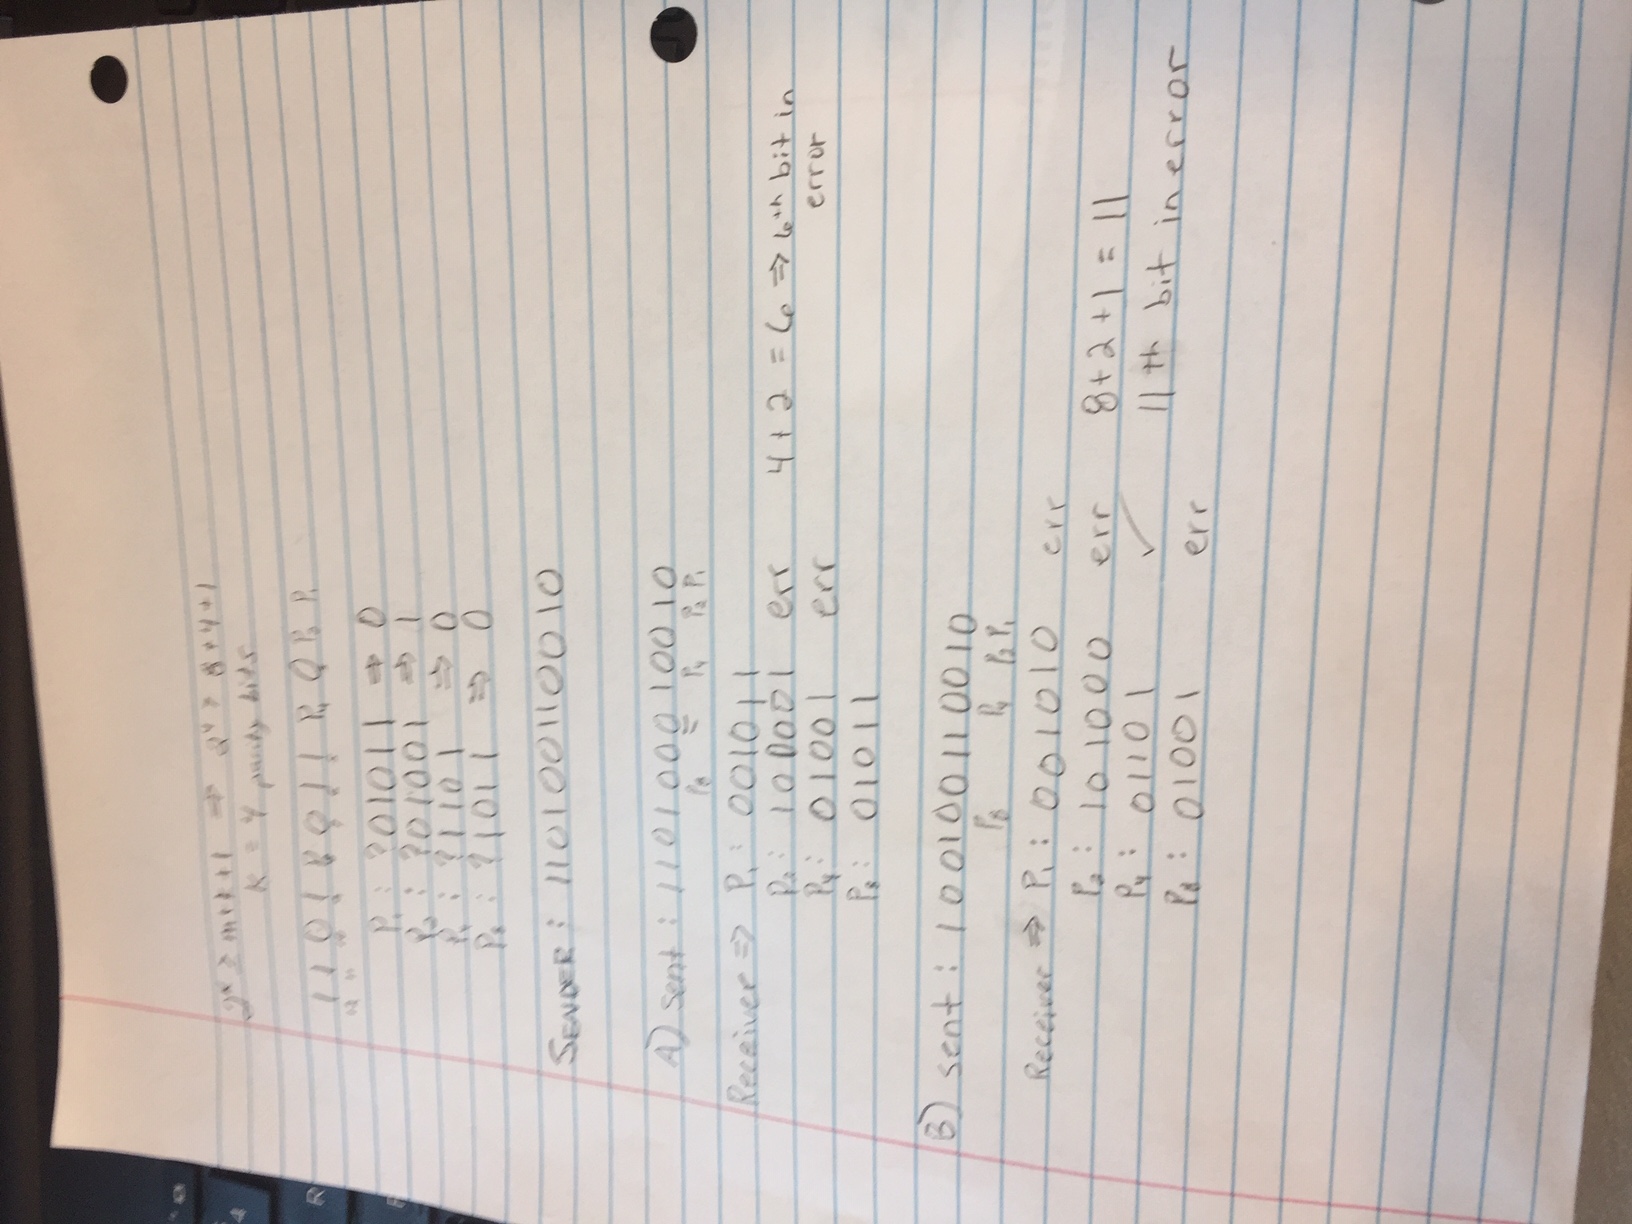 2^k ≥ m+k+1 ⇒ 2^4 ≥ 8+4+1
k = 4 parity bits
1 1 0 1 P8 0 1 1 P4 0 P2 P1
12 11
P1 : ?01011 ⇒ 0
P2 : ?01001 ⇒ 1
P4 : ?1101 ⇒ 0
P8 : ?1011 ⇒ 0
SENDER : 110100110010
A) sent : 110100010010
P8 = P4 P2 P1
Receiver ⇒ P1 : 001011
P2 : 100001 err 4 + 2 = 6 ⇒ 6th bit in
P4 : 01001 err error
P8 : 01011
B) sent : 100100110010
P8 P4 P2 P1
Receiver ⇒ P1 : 001010 err
P2 : 101000 err 8+2+1 = 11
P4 : 01101 ✓ 11th bit in error
P8 : 01001 err